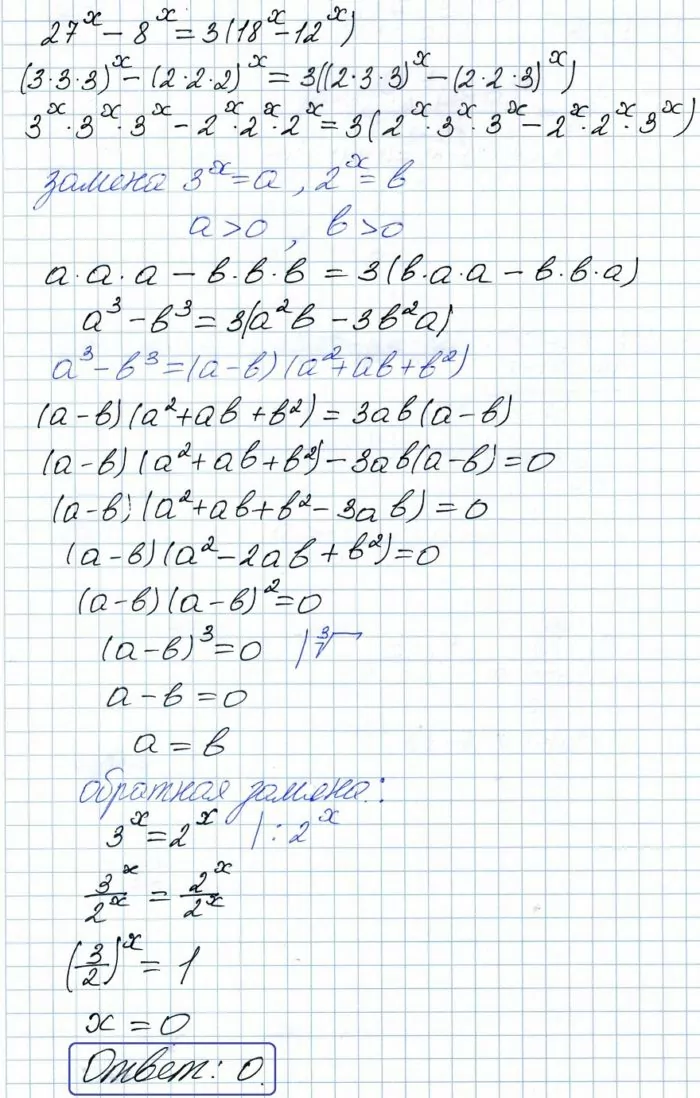 27ˣ − 8ˣ = 3(18ˣ − 12ˣ)
(3·3·3)ˣ − (2·2·2)ˣ = 3((2·3·3)ˣ − (2·2·3)ˣ)
3ˣ·3ˣ·3ˣ − 2ˣ·2ˣ·2ˣ = 3(2ˣ·3ˣ·3ˣ − 2ˣ·2ˣ·3ˣ)
замена 3ˣ = a, 2ˣ = в
a > 0, в > 0
a·a·a − в·в·в = 3(в·a·a − в·в·a)
a³ − в³ = 3(a²в − 3в²a)
a³ − в³ = (a − в)(a² + aв + в²)
(a − в)(a² + aв + в²) = 3aв(a − в)
(a − в)(a² + aв + в²) − 3aв(a − в) = 0
(a − в)(a² + aв + в² − 3aв) = 0
(a − в)(a² − 2aв + в²) = 0
(a − в)(a − в)² = 0
(a − в)³ = 0 |∛
a − в = 0
a = в
обратная замена:
3ˣ = 2ˣ | : 2ˣ
3ˣ/2ˣ = 2ˣ/2ˣ
(3/2)ˣ = 1
x = 0
Ответ: 0.